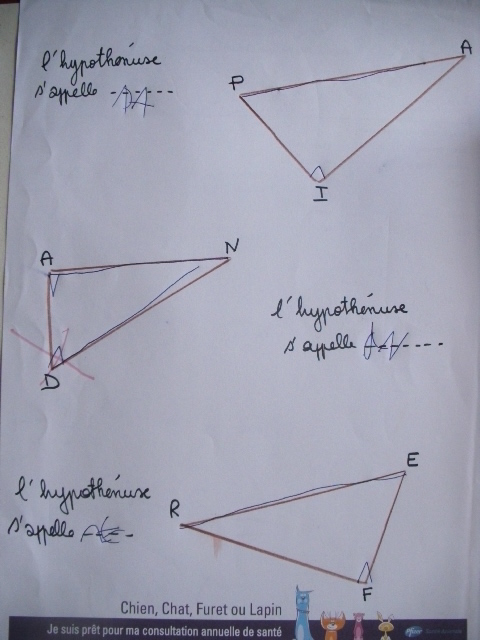 l'hypothénuse
s'appelle
P
A
I
A
N
D
l'hypothénuse
s'appelle
l'hypothénuse
s'appelle
R
E
F
Chien, Chat, Furet ou Lapin
Je suis prêt pour ma consultation annuelle de santé
Pfizer